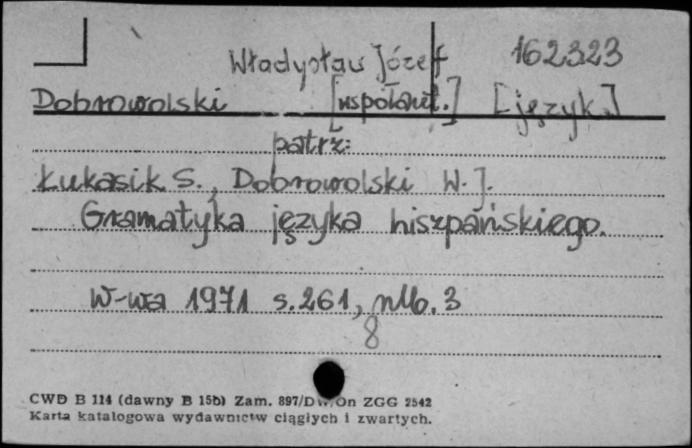 Władysław Józef 162323
Dobrowolski [współaut.] [język.]
patrz:
Łukasik S., Dobrowolski W. J.
Gramatyka języka hiszpańskiego.
W-wa 1971 s. 261, nlb. 3
8
CWD B 114 (dawny B 15b) Zam. 897/DW/On ZGG 2542
Karta katalogowa wydawnictw ciągłych i zwartych.